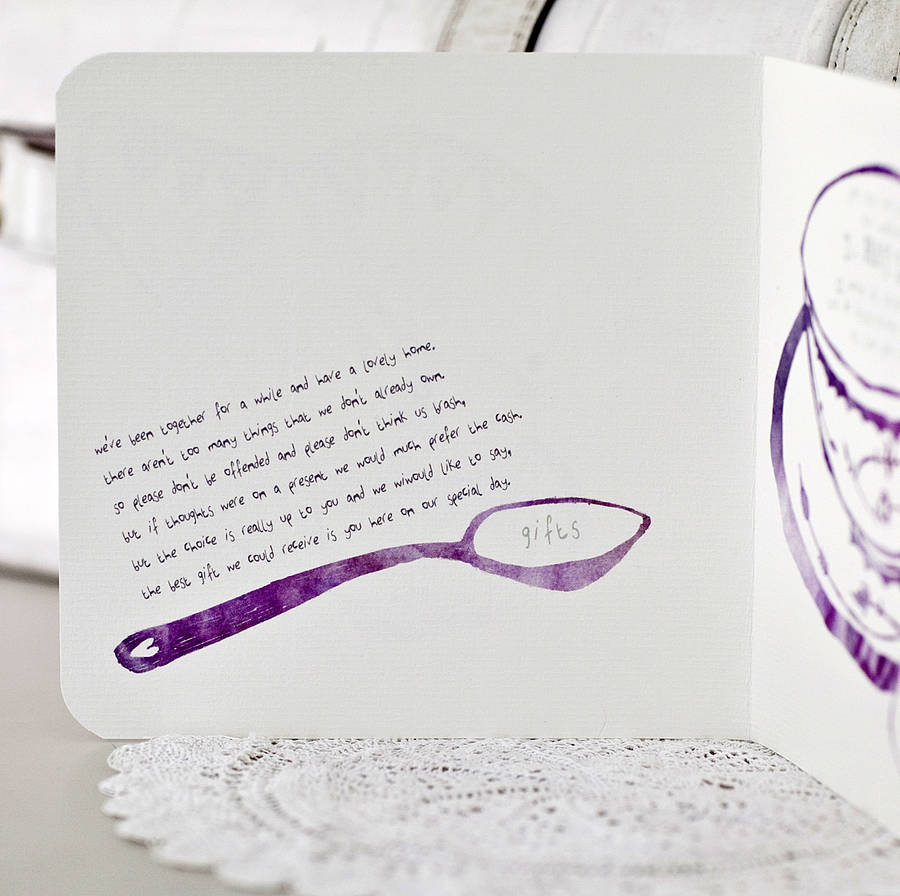 we've been together for a while and have a lovely home.
there aren't too many things that we don't already own.
so please don't be offended and please don't think us brash,
but if thoughts were on a present we would much prefer the cash.
but the choice is really up to you and we wiwould like to say,
the best gift we could receive is you here on our special day.
gifts